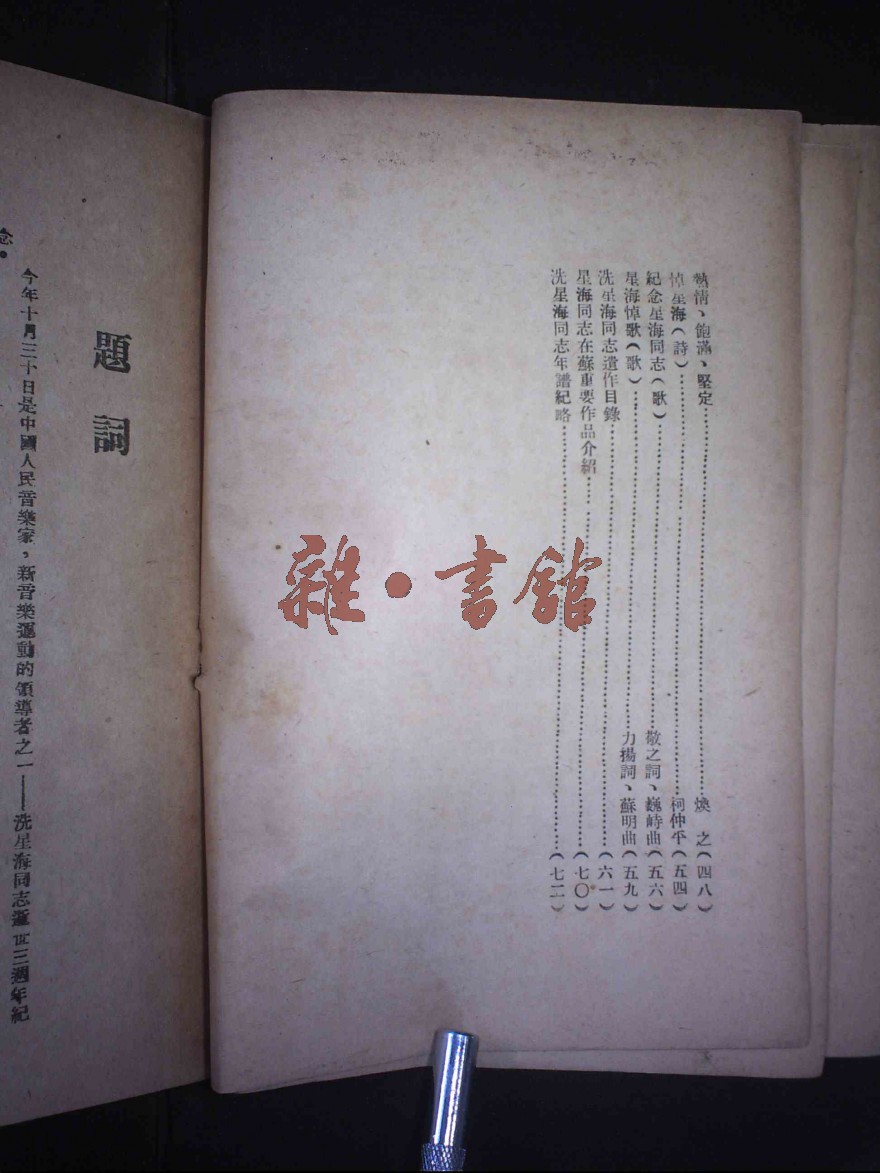 熱情、飽滿、堅定……煥 之(四八)
悼星海(詩)……柯仲平(五四)
紀念星海同志(歌)……敬之詞、巍峙曲(五六)
星海悼歌(歌)……力揚詞、蘇明曲(五九)
冼星海同志遺作目錄……(六一)
星海同志在蘇重要作品介紹……(七〇)
冼星海同志年譜紀略……(七二)
雜·書館
題詞
今年十月三十日是中國人民音樂家,新音樂運動的領導者之一——冼星海同志逝世三週年紀
念。